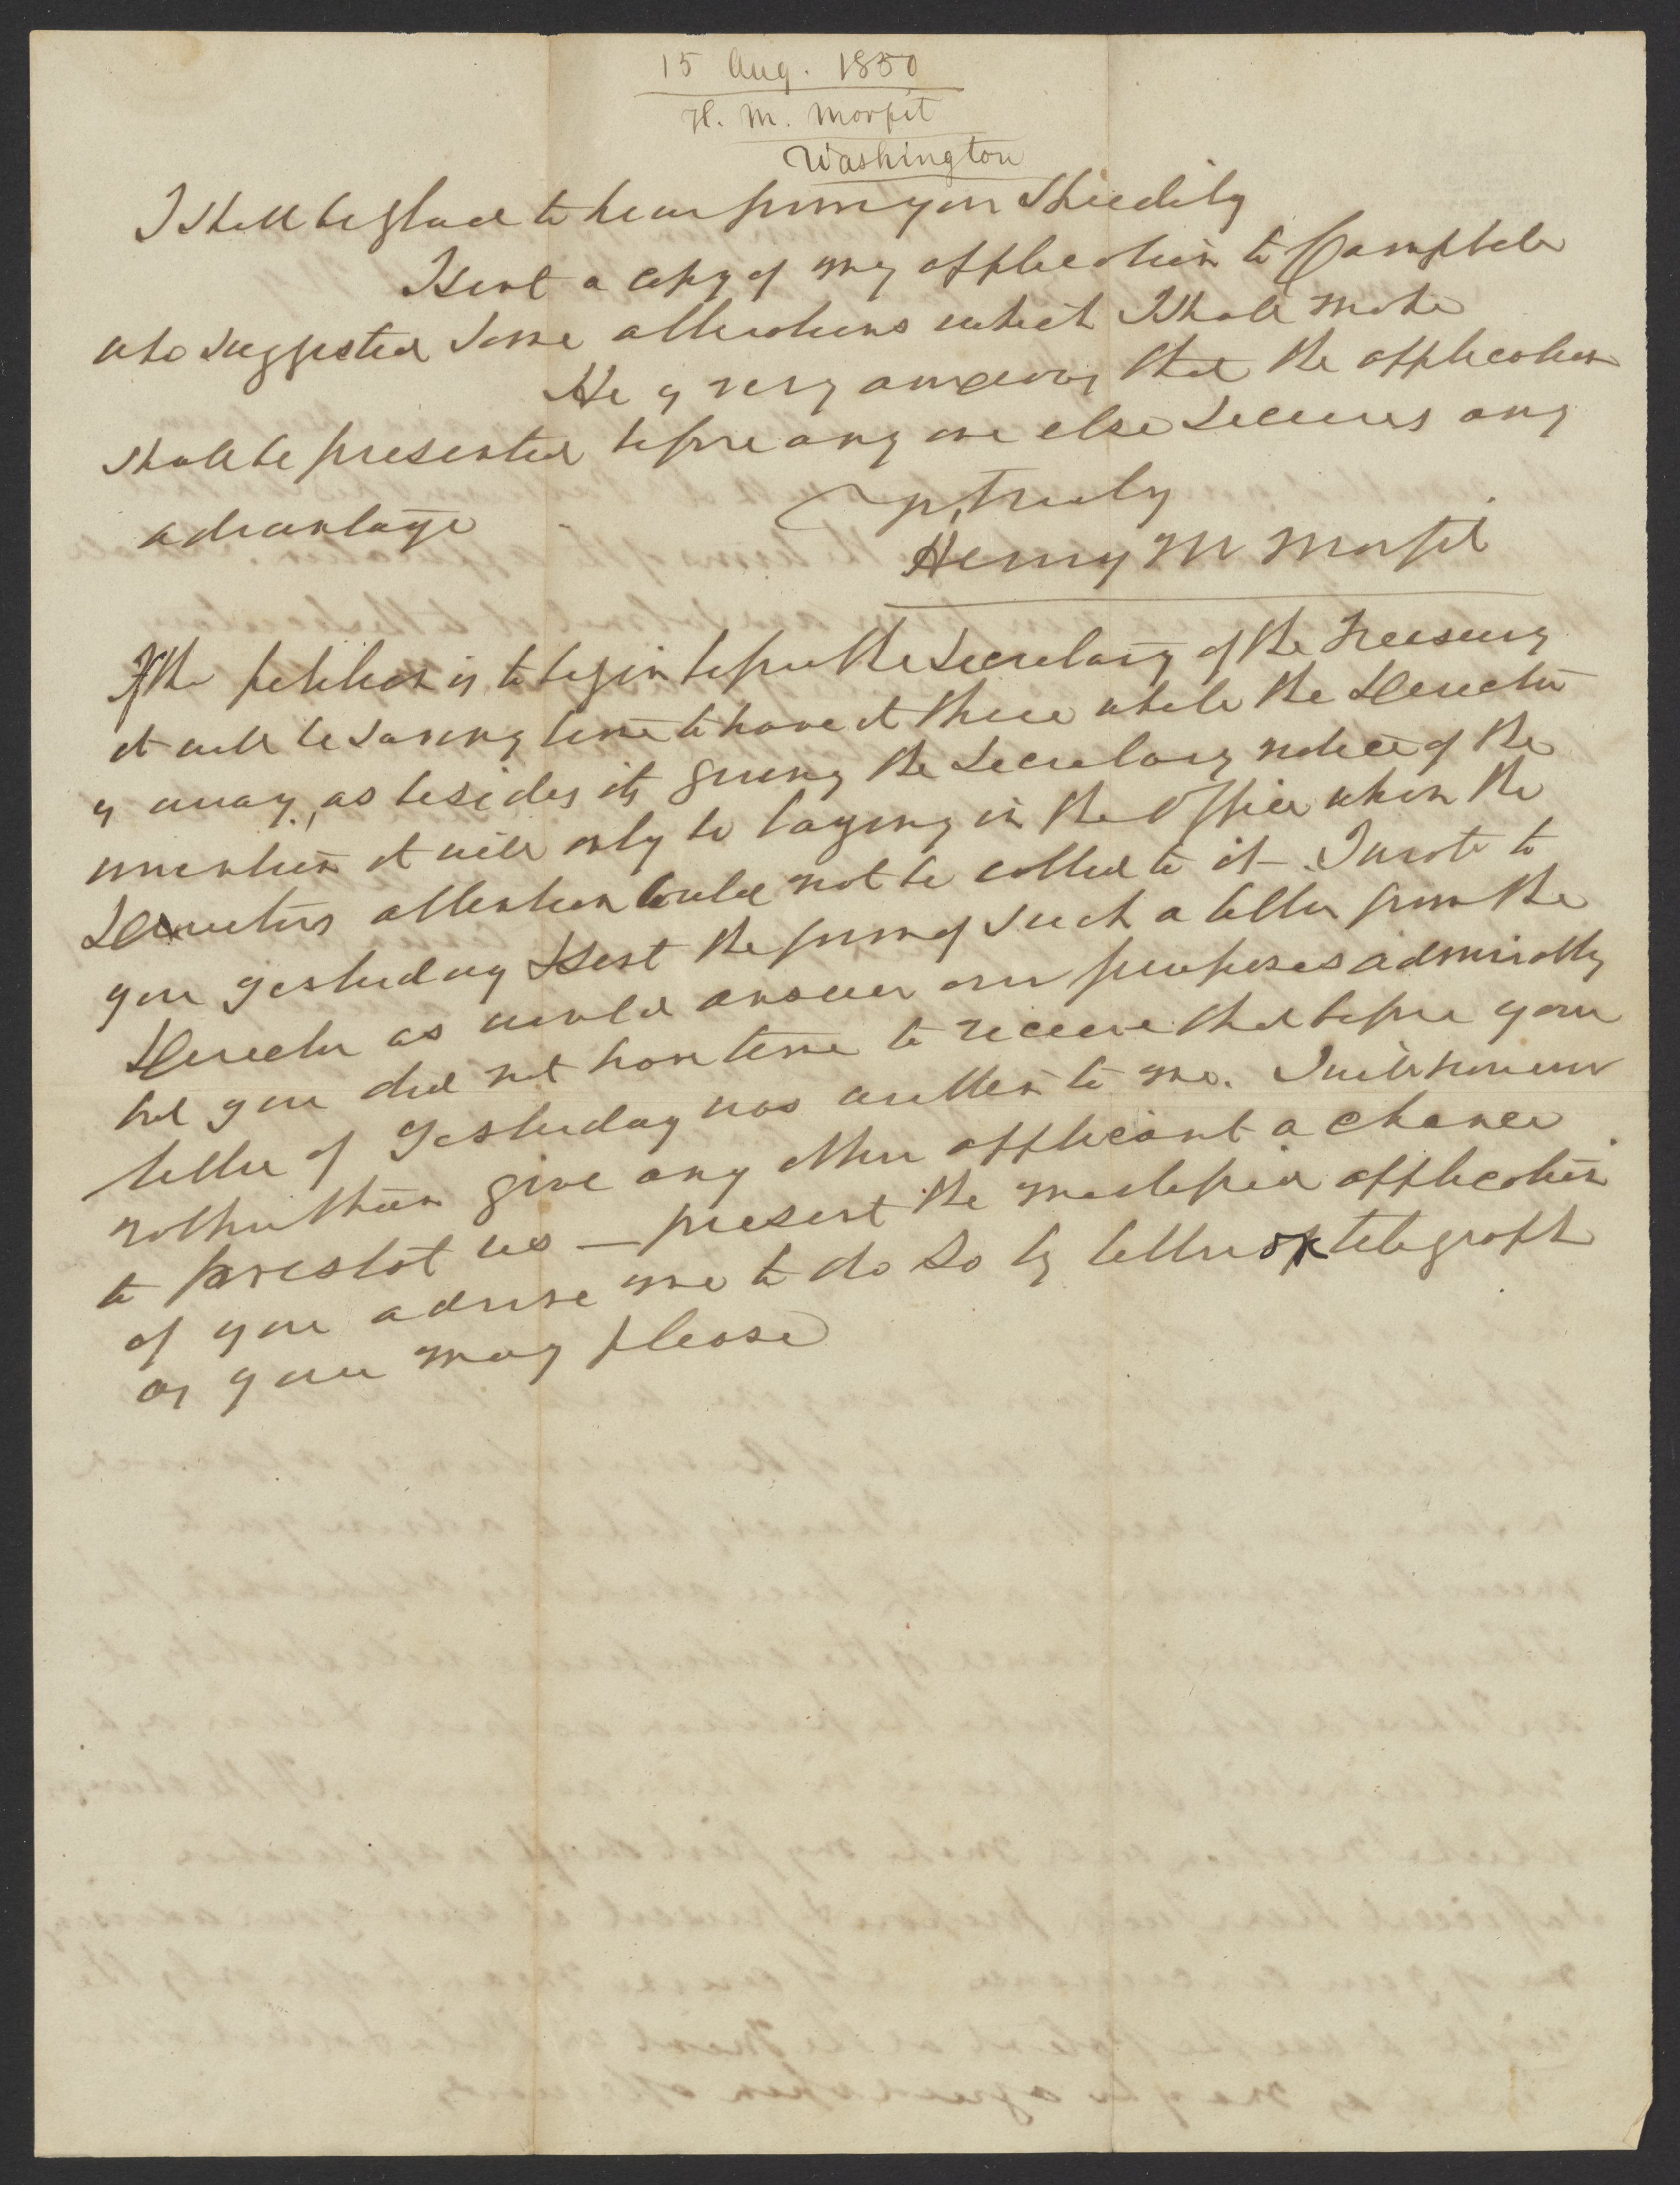 15 Aug. 1850
H. M. Morfit
Washington
I shall be glad to hear from you speedily
I sent a copy of my application to Campbell
who suggested some alterations which I shall make
He is very anxious that the application
shall be presented before any one else secures any
advantage
truly
Henry M Morfit
If the petition is to begin before the Secretary of the Treasury
it will be saving time to have it there while the Director
is away, as besides its giving the Secretary notice of the
invention it will only be laying in the Office when the
Directors attention could not be called to it. I wrote to
you yesterday & sent the form of such a letter from the
Director as would answer our purposes admirably
but you did not have time to receive that before your
letter of yesterday was written to me. I will however
rather than give any other applicant a chance
to forestal us — present the modified application
if you advise me to do so by letter or telegraph
as you may please